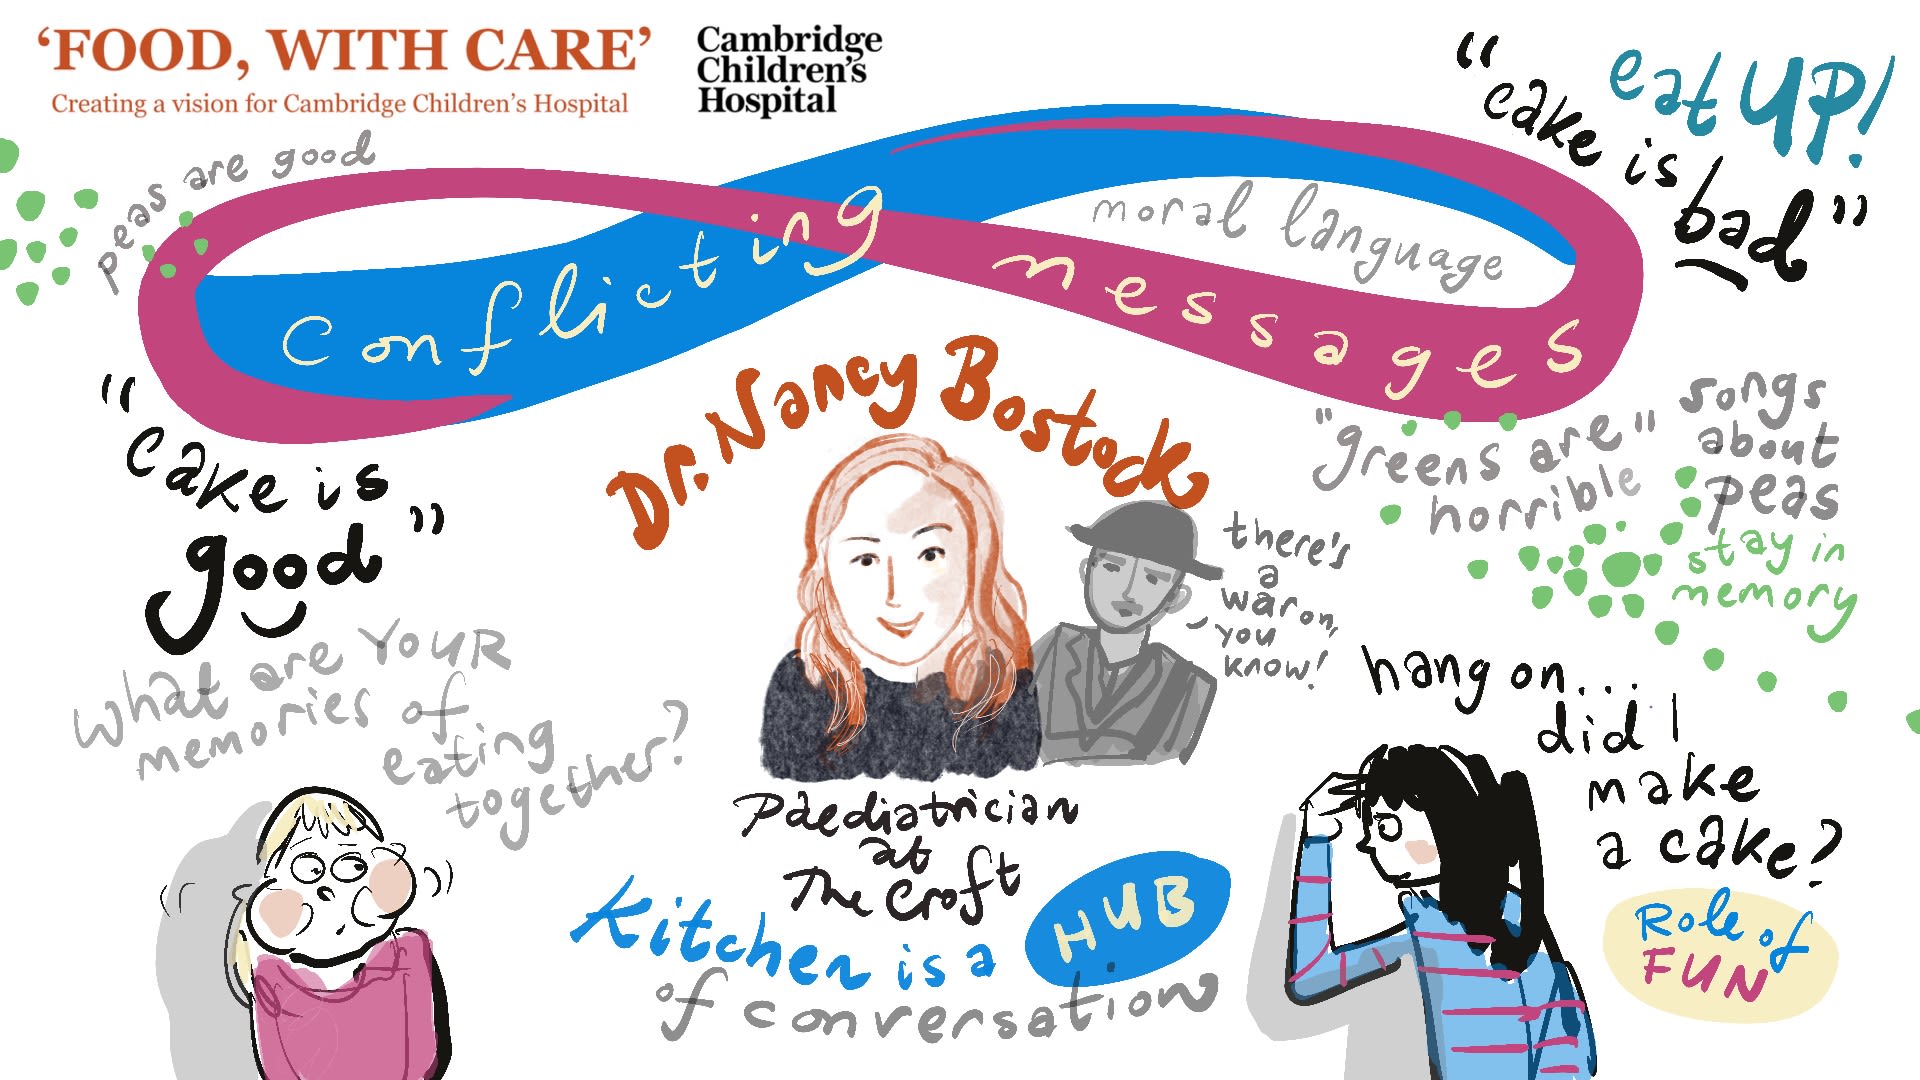 ‘FOOD, WITH CARE’
Creating a vision for Cambridge Children’s Hospital
Cambridge
Children’s
Hospital
eat UP!
"cake is
bad"
peas are good
moral language
conflicting messages
"cake is
good"
Dr. Nancy Bostock
"greens are"
horrible
songs
about
peas
stay in
memory
there's
a
war on,
you
know!
what are YOUR
memories of
eating
together?
hang on...
did I
make
a cake?
Paediatrician
at
The Croft
Kitchen is a HUB
of conversation
Role of
FUN